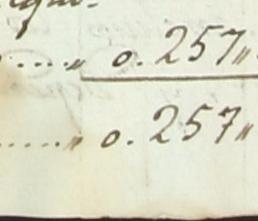 ..... „ o. 257 „
..... „ o. 257 „